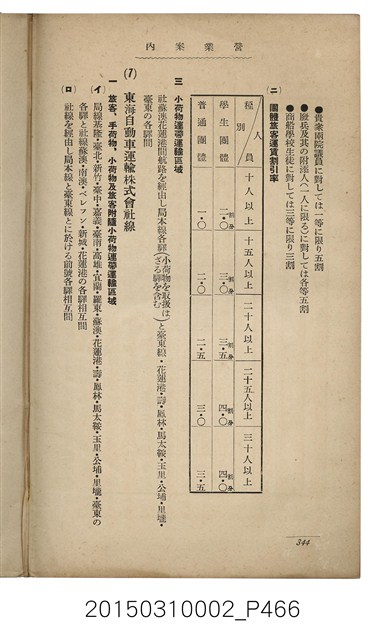 內案業營
●貴衆兩院議員に對しては一等に限り五割
●廢兵及其の附添人(一人に限る)に對しては各等五割
●商船學校生徒に對しては三等に限り三割
(二) 團體旅客運賃割引率
種別 人員 十人以上 十五人以上 二十人以上 二十五人以上 三十人以上
學生團體 二・〇割引 三・〇割引 三・五割引 四・〇割引 四・〇割引
普通團體 一・〇 二・〇 二・五 三・〇 三・五
三 小荷物連帶運輸區域
社蘇澳花蓮港間航路を經由し局本線各驛(小荷物を取扱はざる驛を含む)と臺東線・花蓮港・壽・鳳林・馬太鞍・玉里・公埔・里壠・
臺東の各驛間
(7) 東海自動車運輸株式會社線
一 旅客、手荷物、小荷物及旅客附隨小荷物連帶運輸區域
(イ) 局線基隆・臺北・新竹・臺中・嘉義・臺南・高雄・宜蘭・羅東・蘇澳・花蓮港・壽・鳳林・馬太鞍・玉里・公埔・里壠・臺東の
各驛と社線蘇澳・南澳・ベレフン・新城・花蓮港の各驛相互間
(ロ) 社線を經由し局本線と臺東線とに於ける前號各驛相互間
344
20150310002_P466